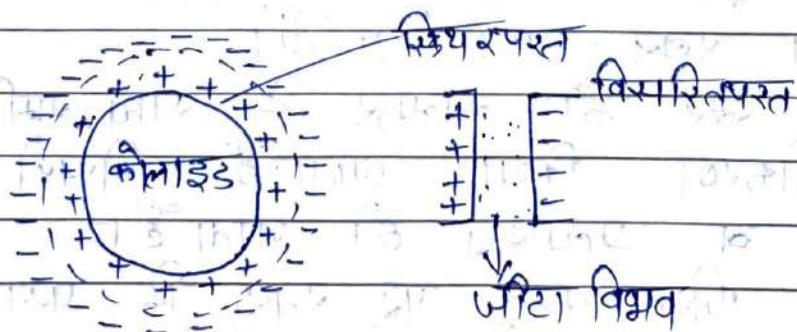 स्थिर परत
विसरित परत
कोलाइड
जीटा विभव